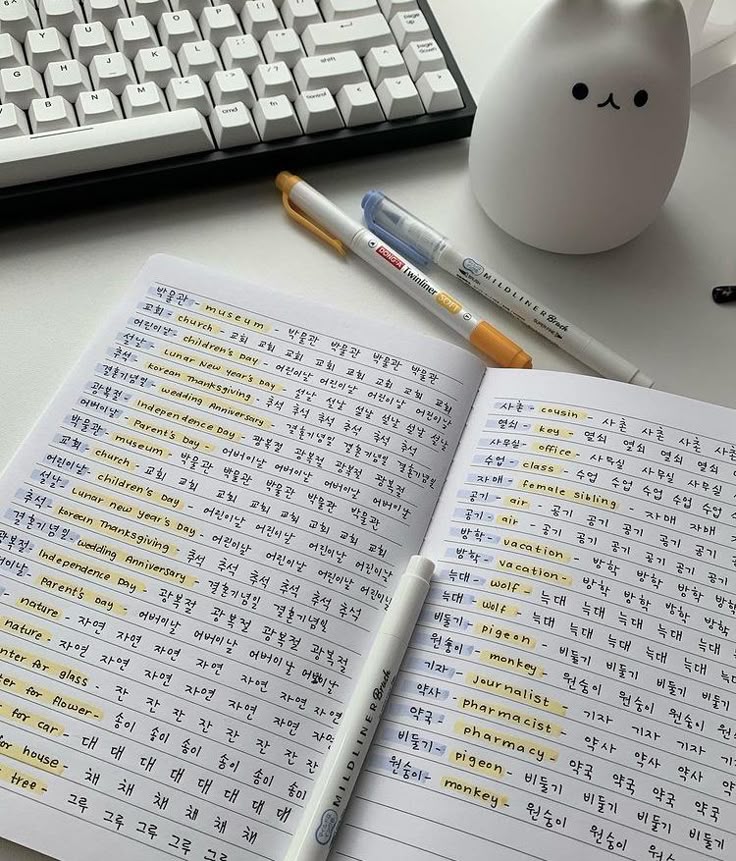 O P
K L
G H J
B N M
page up
page down
shift
cmd fn control
DONG-A Twinliner SOFT
MILDLINER Brush
박물관 - museum - 박물관 박물관 박물관 박물관
교회 - church - 교회 교회 교회 교회 교회 교회
어린이날 - children's Day - 어린이날 어린이날 어린이날 어린이날
설날 - Lunar New year's Day - 설날 설날 설날 설날 설날 설날
추석 - korean Thanksgiving - 추석 추석 추석 추석 추석
결혼기념일 - wedding Anniversary - 결혼기념일 결혼기념일 결혼기념일
광복절 - Independence Day - 광복절 광복절 광복절 광복절
어버이날 - Parent's Day - 어버이날 어버이날 어버이날 어버이날
박물관 - museum - 박물관 박물관 박물관 박물관 박물관
교회 - church - 교회 교회 교회 교회 교회 교회
어린이날 - children's Day - 어린이날 어린이날 어린이날 어린이날
설날 - Lunar New year's Day - 설날
추석 - korean Thanksgiving - 추석 추석 추석 추석 추석
결혼기념일 - wedding Anniversary - 결혼기념일 결혼기념일
광복절 - Independence Day - 광복절 광복절 광복절 광복절
어버이날 - Parent's Day - 어버이날 어버이날 어버이날 어버이날
- nature - 자연 자연 자연 자연 자연 자연 자연
nature - 자연 자연 자연 자연 자연 자연
for glass - 잔 잔 잔 잔 잔 잔
for flower - 송이 송이 송이 송이 송이
for car - 대 대 대 대 대 대 대
for house - 채 채 채 채 채
tree - 그루 그루 그루 그루 그루
사촌 - cousin - 사촌 사촌 사촌 사촌
열쇠 - key - 열쇠 열쇠 열쇠 열쇠
사무실 - office - 사무실 사무실 사무실
수업 - class - 수업 수업 수업 수업
자매 - female sibling - 자매 자매
공기 - air - 공기 공기 공기 공기
공기 - air - 공기 공기 공기 공기 공기
방학 - vacation - 방학 방학 방학 방학
방학 - vacation - 방학 방학 방학 방학
늑대 - wolf - 늑대 늑대 늑대 늑대 늑대
늑대 - wolf - 늑대 늑대 늑대 늑대 늑대
비둘기 - pigeon - 비둘기 비둘기 비둘기 비둘기
원숭이 - monkey - 원숭이 원숭이 원숭이
기자 - journalist - 기자 기자 기자
약사 - pharmacist - 약사 약사 약사
약국 - pharmacy - 약국 약국 약국 약국
비둘기 - pigeon - 비둘기 비둘기 비둘기 비둘기
원숭이 - monkey - 원숭이 원숭이 원숭이
MILDLINER Brush